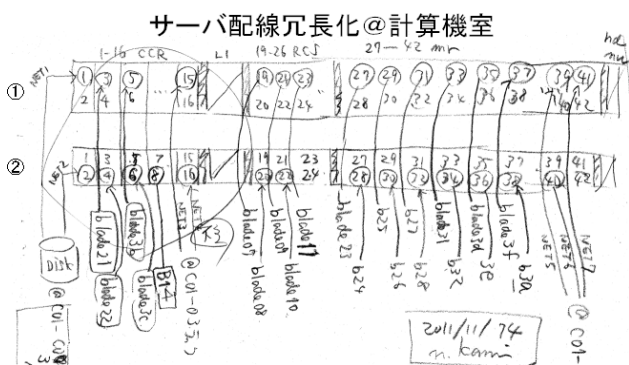 サーバ配線冗長化@計算機室
1-16 CCR L1 19-26 RCS 27-42 mr
① NET1 1 3 5 15 19 21 23 27 29 31 33 35 37 39 41
2 4 6 … 16 20 22 24 28 30 32 34 36 38 40 42
② NET2 1 3 5 7 15 19 21 23 27 29 31 33 35 37 39 41
2 4 6 8 16 20 22 24 28 30 32 34 36 38 40 42
Disk
@C01-
blade21
blade22
blade3b
blade3c
B14
NET3
@C01-03
blade07
blade08
blade09
blade10
blade17
blade23
b24
b25
b26
b27
b28
blade31
b32
blade3d
3e
blade3f
b3a
NET5
NET6
NET7
@C01-
2011/11/